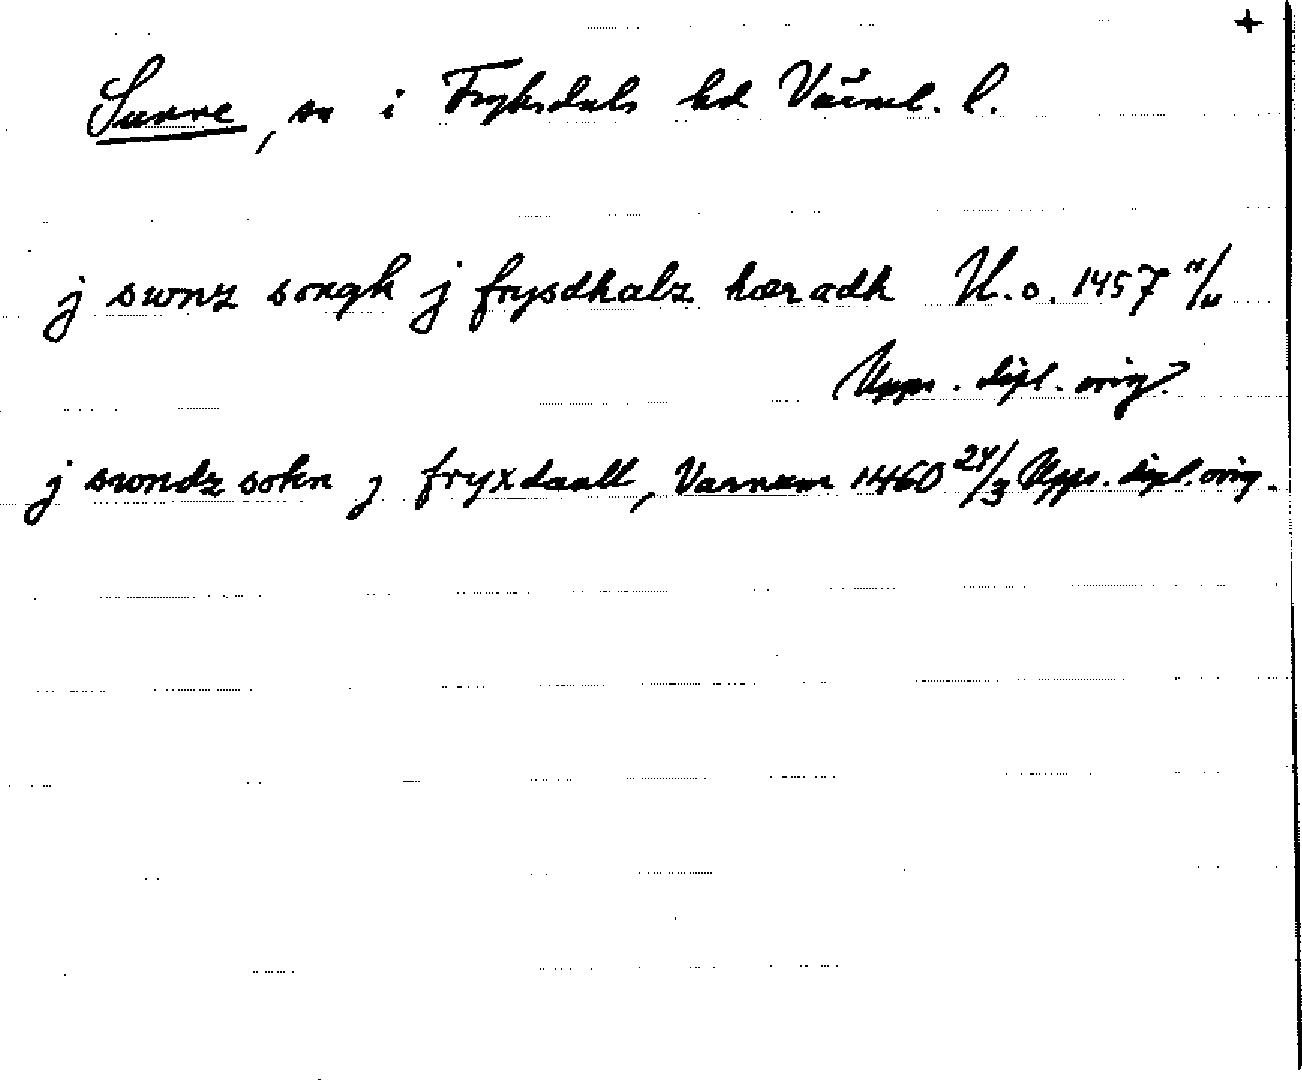 +
Sunne, sn i Fryksdals hd Värml. l.
j swnz songk j frysdhalz hæradh U.o. 1457 11/11
Upps. dipl. orig.
j swndz sokn j fryxdaall, Varnum 1460 24/3 Upps. dipl. orig.